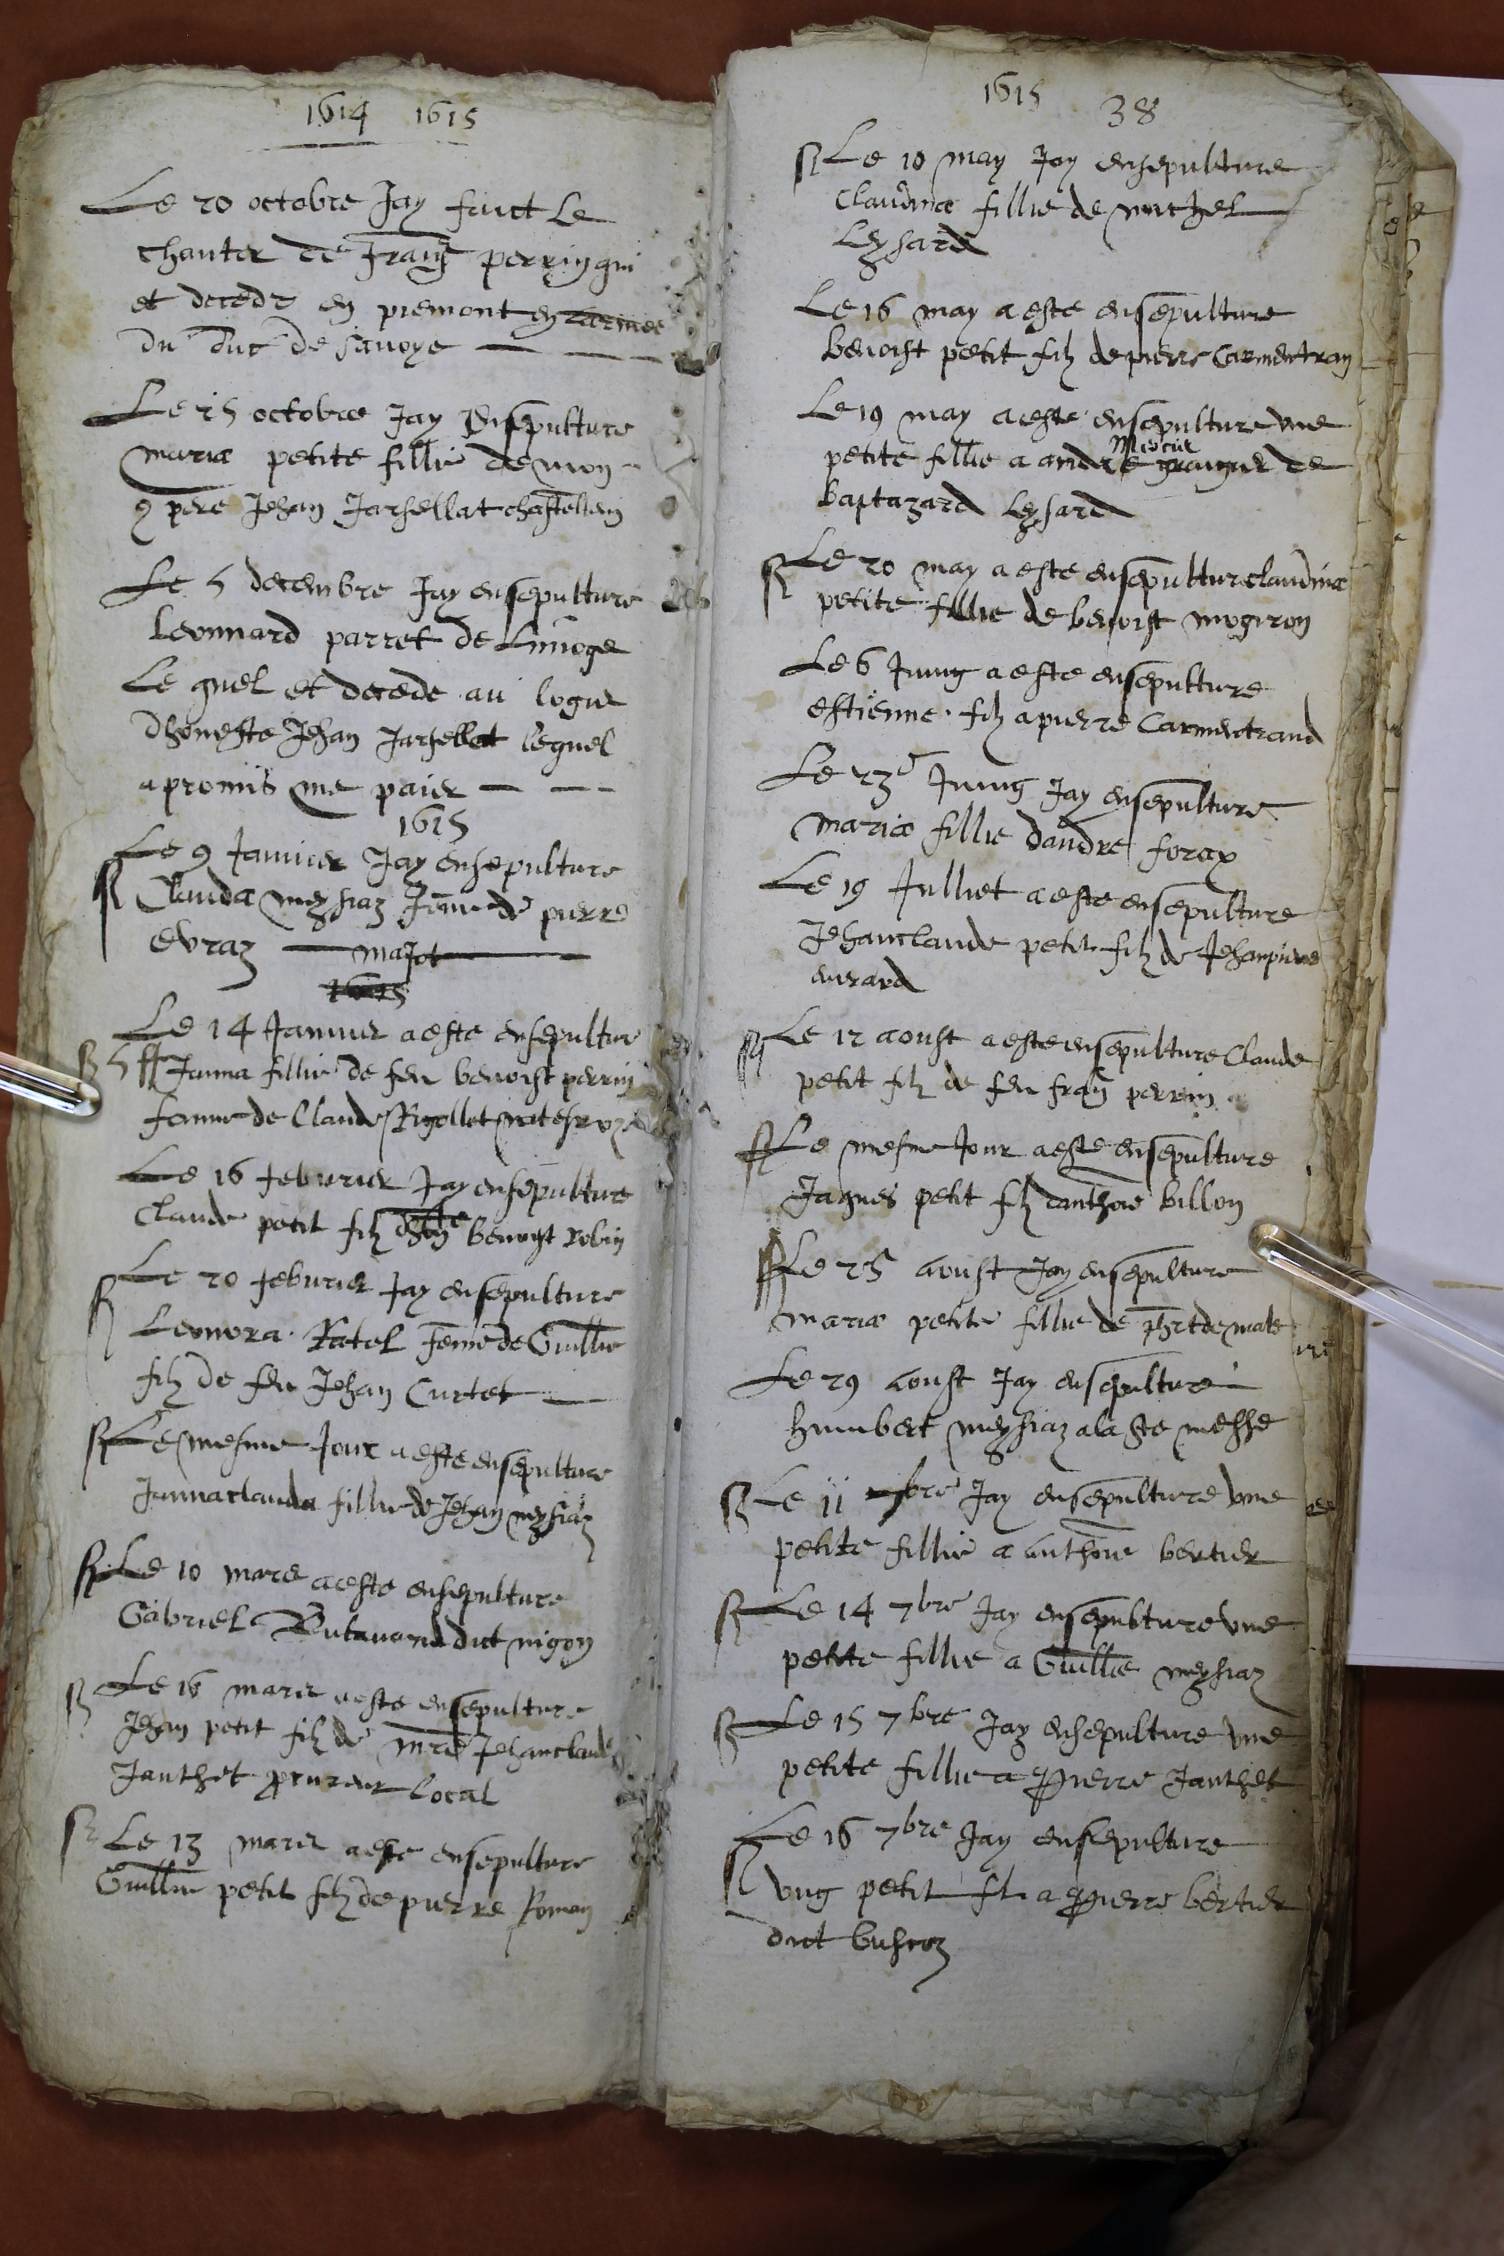 1614 1615
Le 20 octobre Jay faict Le
chanter de Frang perrin qui
et decede en piemont en Larmee
du duc de Savoye
Le 25 octobre Jay Ensepulture
Maria petite fillie de mon
9pere Jehan Jarsellat chastellein
Le 5 decembre Jay ensepulture
Leonnard parret de Limoge
Le quel et decede au logis
dhoneste Jehan Jarsellat lequel
a promis me paier
1615
Le 9 Januier Jay ensepulture
Clauda meysiaz feme de pierre
evraz majot
1615
Le 14 Januier a este ensepultur
Janna fillie de feu benoist perrin
femme de Claude Rigollet
Le 16 feburier Jay ensepulture
Claude petit filz benoist robin
Le 20 feburier Jay ensepulture
Leonora Ratel feme de Guillie
filz de feu Jehan Curtet
Le mesme Jour a este ensepulture
Jannaclauda fillie de Jehan meysiaz
Le 10 mars a este ensepulture
Gabriel Butavand dit nigon
Le 16 mars a este ensepulture
Jehan petit filz de mre Jehanclaude
Janthet procureur Local
Le 13 mars a este ensepulture
Guillie petit filz de pierre Roman
1615 38
Le 10 may Jay ensepulture
Claudina fillie de michel
Leysard
Le 16 may a este ensepulture
benoist petit filz de pierre Carmentran
Le 19 may a este ensepulture une
petite fillie a andre Mercier grangier de
baptazard Leysard
Le 20 may a este ensepulture claudina
petite fillie de benoist mogiron
Le 6 Juing a este ensepulture
estienne filz a pierre Carmentrand
Le 23 Juing Jay ensepulture
Maria fillie dandre forax
Le 19 Julliet a este ensepulture
Jehanclaude petit filz de Jehanpierre
eurard
Le 12 aoust a este ensepulture Claude
petit filz de feu frang perrin
Le mesme Jour a este ensepulture
Jaques petit filz danthoie billon
Le 25 aoust Jay ensepulture
Maria petite fillie de
Le 29 aoust Jay ensepulture
humbert meysiaz a la ste messe
Le 11 7bre Jay ensepulture une
petite fillie a anthoine bertier
Le 14 7bre Jay ensepulture une
petite fillie a Guillie meysiaz
Le 15 7bre Jay ensepulture une
petite fillie a Pierre Janthet
Le 16 7bre Jay ensepulture
ung petit filz a Pierre bertier
dict